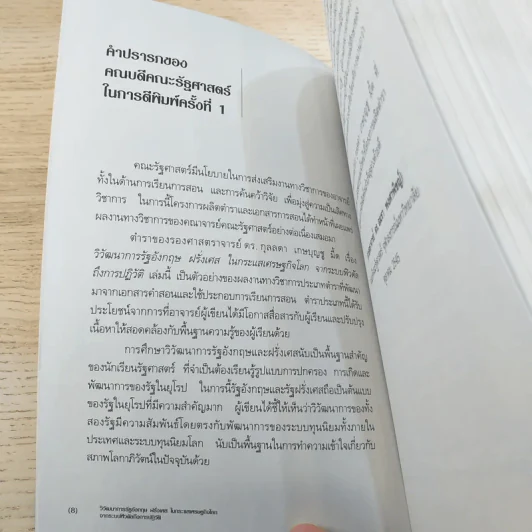 คำปรารภของ
คณบดีคณะรัฐศาสตร์
ในการตีพิมพ์ครั้งที่ 1
คณะรัฐศาสตร์มีนโยบายในการส่งเสริมงานทางวิชาการของอาจารย์
ทั้งในด้านการเรียนการสอน และการค้นคว้าวิจัย เพื่อมุ่งสู่ความเป็นเลิศทาง
วิชาการ ในการนี้โครงการผลิตตำราและเอกสารการสอนได้ทำหน้าที่เผยแพร่
ผลงานทางวิชาการของคณาจารย์คณะรัฐศาสตร์อย่างต่อเนื่องเสมอมา
ตำราของรองศาสตราจารย์ ดร. กุลลดา เกษบุญชู มี้ด เรื่อง
วิวัฒนาการรัฐอังกฤษ ฝรั่งเศส ในกระแสเศรษฐกิจโลก จากระบบฟิวดัล
ถึงการปฏิวัติ เล่มนี้ เป็นตัวอย่างของผลงานทางวิชาการประเภทตำราที่พัฒนา
มาจากเอกสารคำสอนและใช้ประกอบการเรียนการสอน ตำราประเภทนี้ได้รับ
ประโยชน์จากการที่อาจารย์ผู้เขียนได้มีโอกาสสื่อสารกับผู้เรียนและปรับปรุง
เนื้อหาให้สอดคล้องกับพื้นฐานความรู้ของผู้เรียนด้วย
การศึกษาวิวัฒนาการรัฐอังกฤษและฝรั่งเศสนับเป็นพื้นฐานสำคัญ
ของนักเรียนรัฐศาสตร์ ที่จำเป็นต้องเรียนรู้รูปแบบการปกครอง การเกิดและ
พัฒนาการของรัฐในยุโรป ในการนี้รัฐอังกฤษและรัฐฝรั่งเศสถือเป็นต้นแบบ
ของรัฐในยุโรปที่มีความสำคัญมาก ผู้เขียนได้ชี้ให้เห็นว่าวิวัฒนาการของทั้ง
สองรัฐมีความสัมพันธ์โดยตรงกับพัฒนาการของระบบทุนนิยมทั้งภายใน
ประเทศและระบบทุนนิยมโลก นับเป็นพื้นฐานในการทำความเข้าใจเกี่ยวกับ
สภาพโลกาภิวัตน์ในปัจจุบันด้วย
(8) วิวัฒนาการรัฐอังกฤษ ฝรั่งเศส ในกระแสเศรษฐกิจโลก
จากระบบฟิวดัลถึงการปฏิวัติ